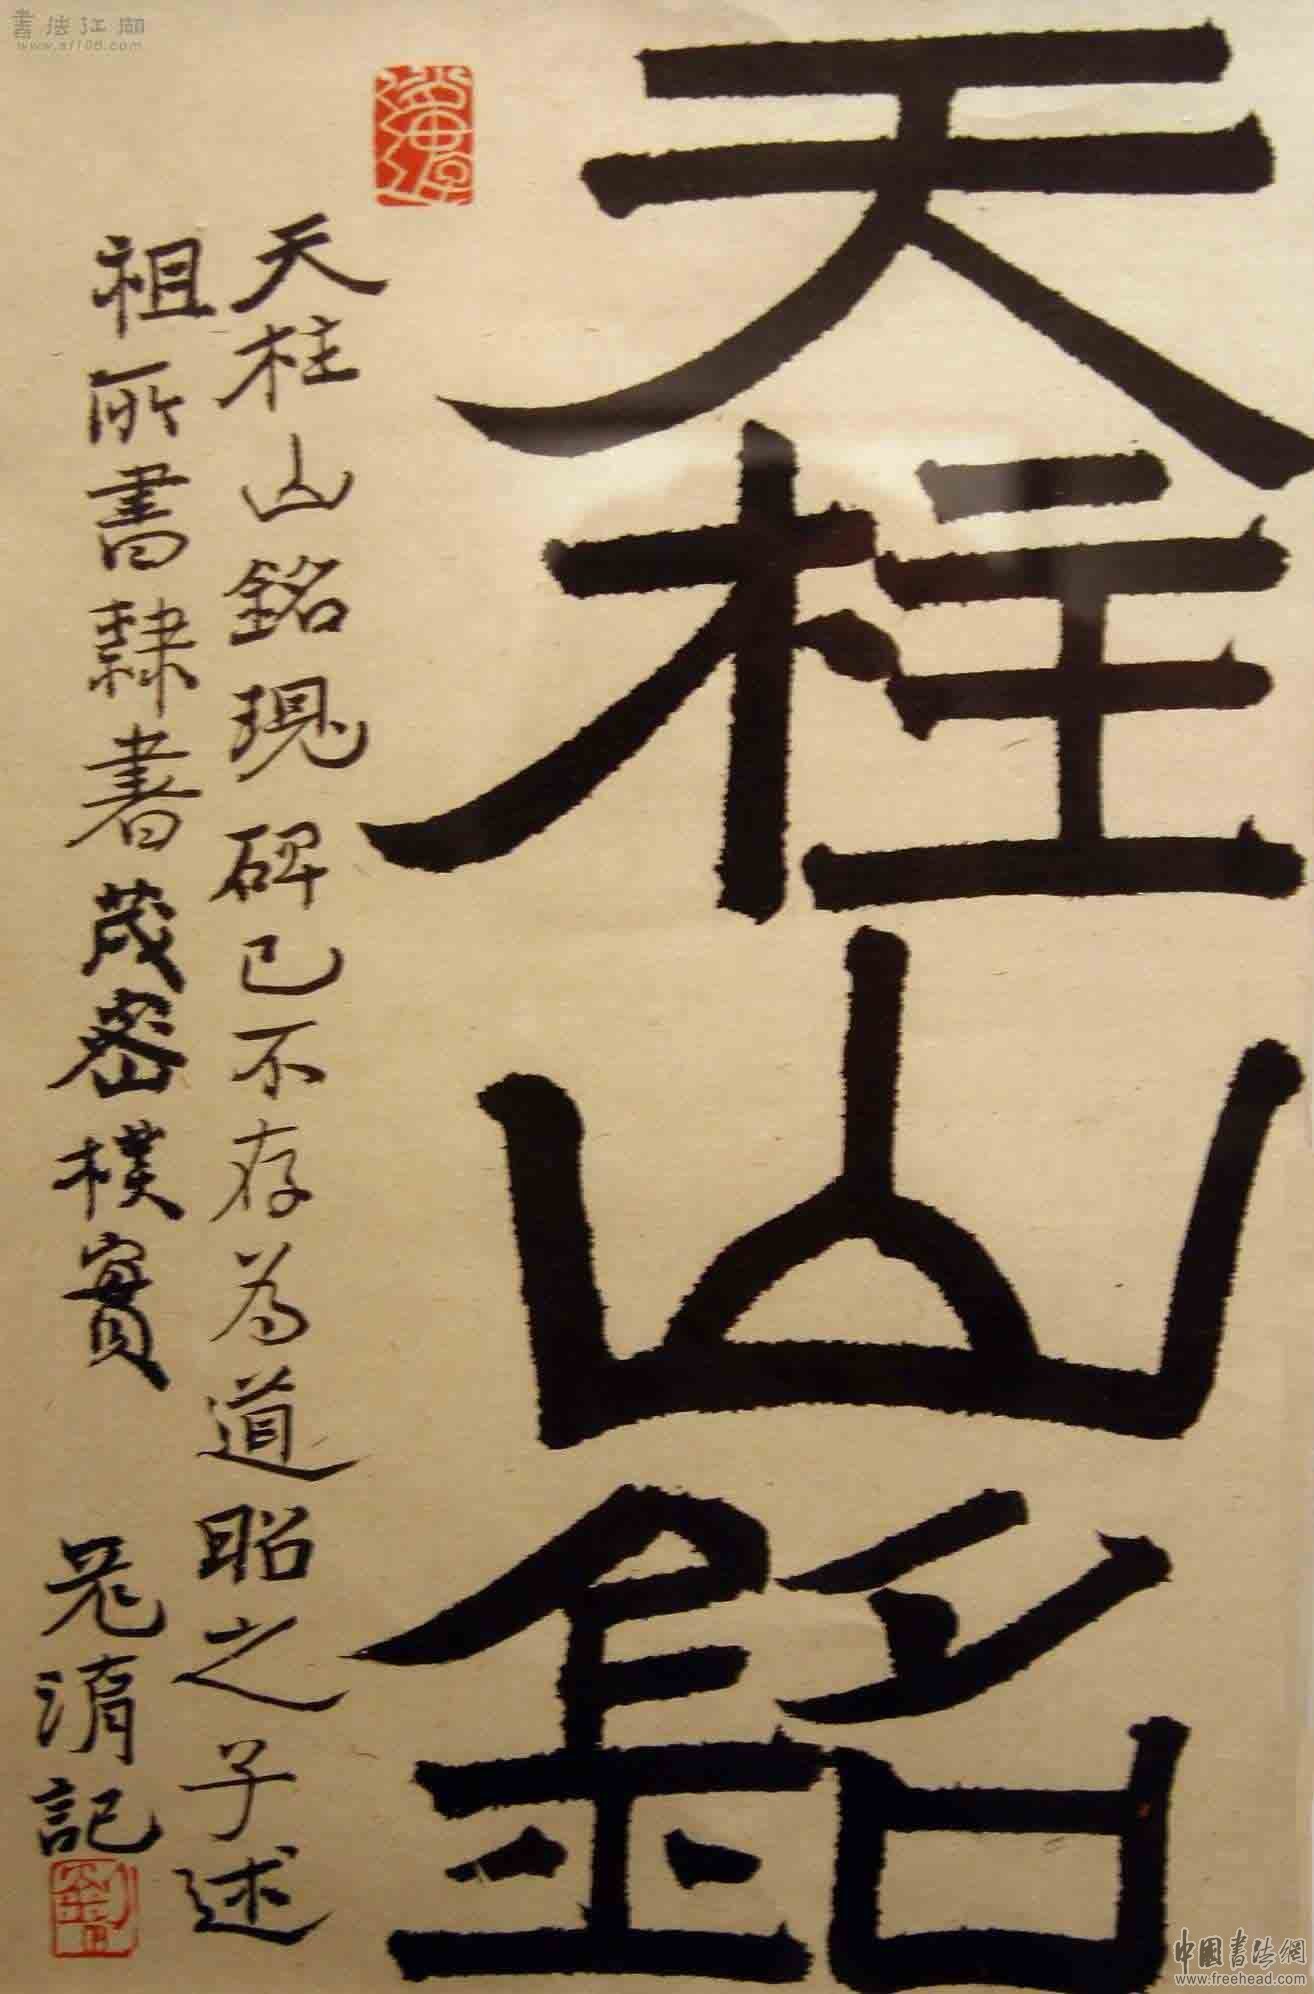 天柱山銘
天柱山銘現碑已不存為道昭之子述
祖所書隸書茂密樸實
淯記
書法江湖
www.sf108.com
中國書法網
www.freehead.com